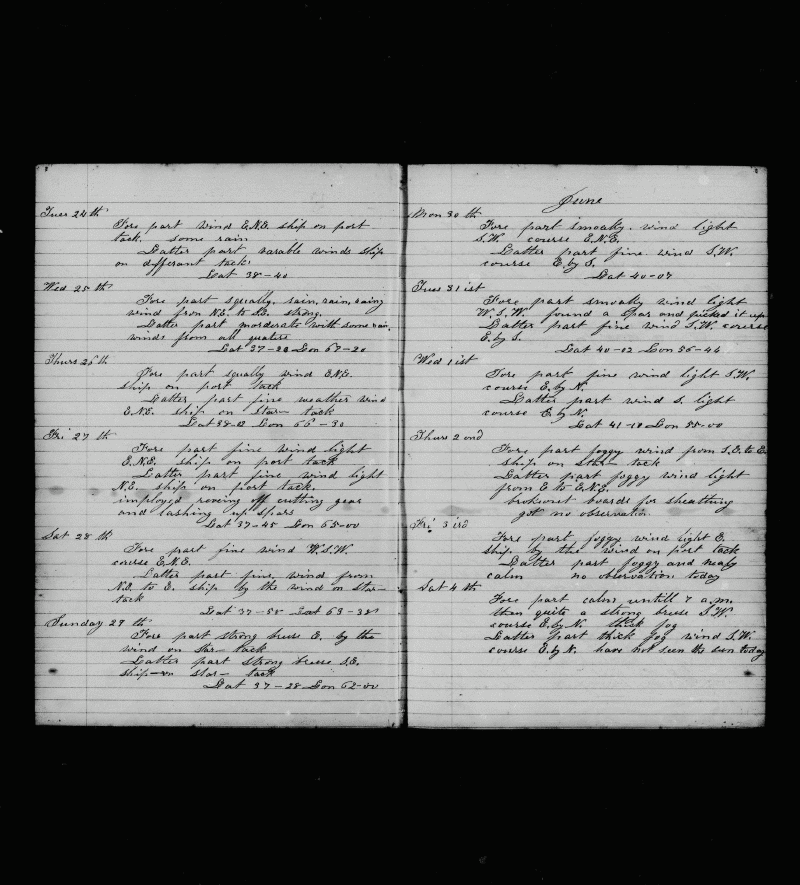 Tues 24 th
Fore part wind E.N.E. ship on port
tack. some rain
Latter part varable winds ship
on differant tack
Lat 38-40
Wed 25 th
Fore part squally, rain, rain, rainy
wind from N.E. to S.E. strong.
Latter part morderate with some rain,
winds from all quaters
Lat 37- Lon 67-20
Thurs 26 th
Fore part squally wind E.N.E.
ship on port tack
Latter part fine weather wind
E.N.E. ship on Star- tack
Lat 38-02 Lon 66-30
Fri 27 th
Fore part fine wind light
E.N.E. ship on port tack
Latter part fine wind light
N.E. ship on port tack.
imployed roveing off cutting gear
and lashing up spars
Lat 37-45 Lon 65-00
Sat 28 th
Fore part fine wind W.S.W.
course E.N.E.
Latter part fine, wind from
N.E. to E. ship by the wind on Star-
tack
Lat 37-58 63-38
Sunday 29 th
Fore part strong breese E. by the
wind on Star- tack
Latter part strong breese S.E.
ship-on star- tack
Lat 37-28 Lon 62-00
June
Mon 30 th
Fore part smoaky. wind light
S.W. course E.N.E.
Latter part fine wind S.W.
course E. by S.
Lat 40-07
Tues 31 ist
Fore part smoaky wind light
W.S.W. found a Spar and picked it up
Latter part fine wind S.W. course
E. by S.
Lat 40-02 Lon 56-44
Wed 1 ist
Fore part fine wind light S.W.
course E. by N.
Latter part wind S. light
course E by N.
Lat 41-10 Lon 55-00
Thurs 2 ond
Fore part foggy wind from S.E. to E.
ship on star- tack
Latter part foggy wind light
from E to E.N.E.
broke out boards for sheathing
got no observation.
Fri 3 ird
Fore part, foggy wind light E.
ship by the wind on port tack
Latter part foggy and nealy
calm no observation today
Sat 4 th
Fore part calm, untill 7 a.m.
then quite a strong breese S.W.
course E. by N. thick fog
Latter part thick fog wind S.W.
course E. by N. have not seen the sun today